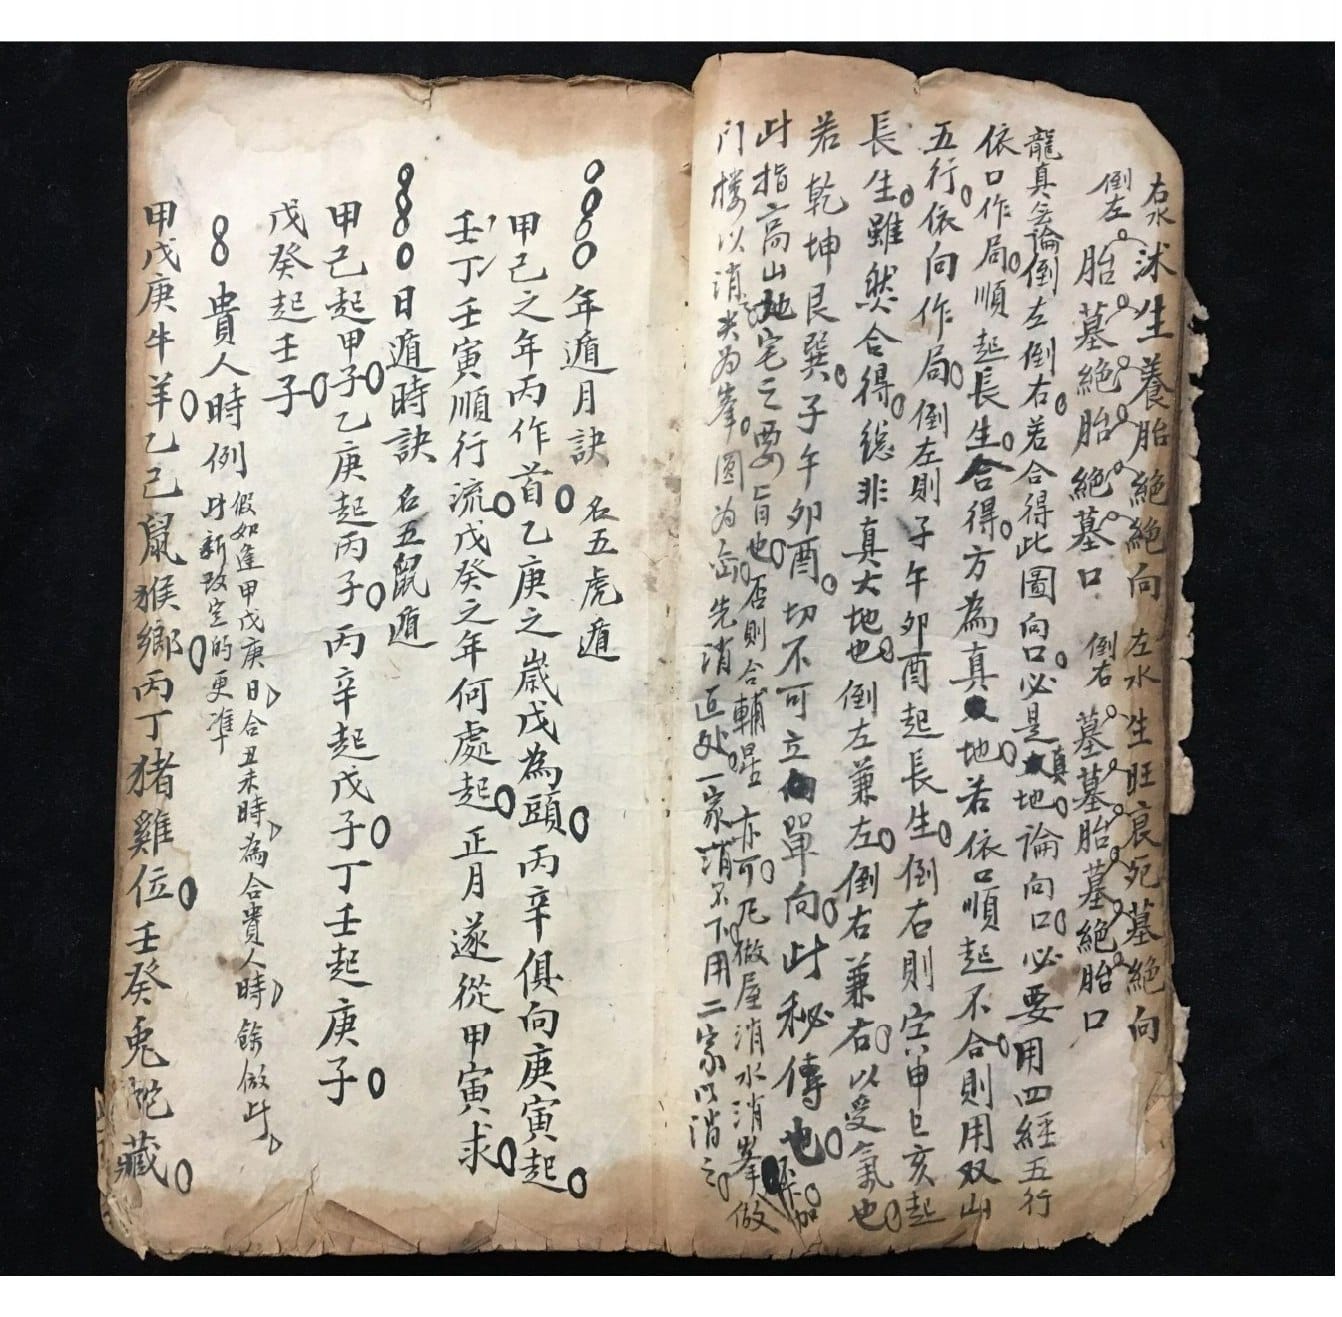 右水
倒左
沐生養胎絕絕向
左水
倒右
生旺衰死墓絕向
胎墓絕胎絕墓口
墓墓胎墓絕胎口
龍真 論倒左倒右若合得此圖向口必是真地論向口必要用四經五行
依口作局順起長生合得方為真地若依口順起不合則用双山
五行依向作局倒左則子午卯酉起長生倒右則寅申巳亥起
長生雖然合得總非真大地也倒左兼左倒右兼右以受氣也
若乾坤艮巽子午卯酉切不可立單向此秘傳也
此指高山地宅之要旨也否則合輔星亦可凡做屋消水消峯做
門楼以消 為峯圓為 先消近处一家消不下用二家以消之
年遁月訣 名五虎遁
甲己之年丙作首乙庚之歲戊為頭丙辛俱向庚寅起
壬丁壬寅順行流戊癸之年何處起正月遂從甲寅求
日遁時訣 名五鼠遁
甲己起甲子乙庚起丙子丙辛起戊子丁壬起庚子
戊癸起壬子
貴人時例
假如逢甲戊庚日合丑未時為合貴人時餘倣此
此新改定的更準
甲戊庚牛羊乙己鼠猴鄉丙丁猪雞位壬癸兎蛇藏